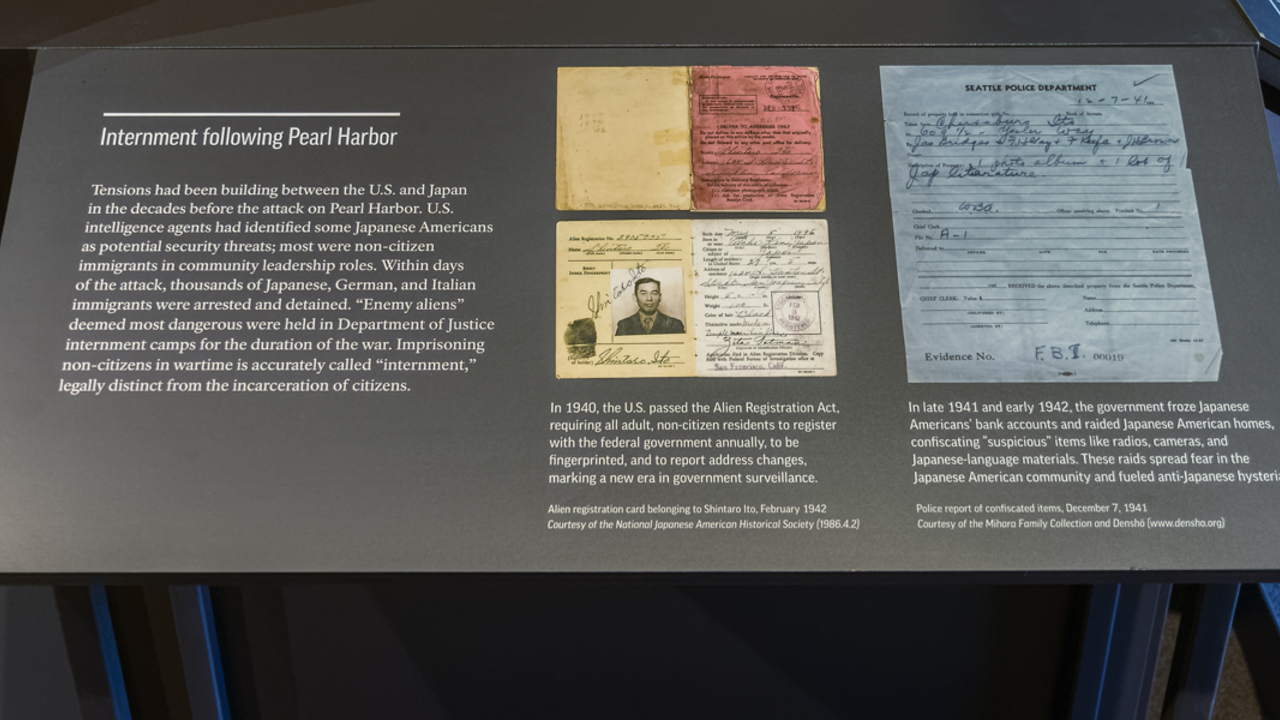 Internment following Pearl Harbor
Tensions had been building between the U.S. and Japan
in the decades before the attack on Pearl Harbor. U.S.
intelligence agents had identified some Japanese Americans
as potential security threats; most were non-citizen
immigrants in community leadership roles. Within days
of the attack, thousands of Japanese, German, and Italian
immigrants were arrested and detained. “Enemy aliens”
deemed most dangerous were held in Department of Justice
internment camps for the duration of the war. Imprisoning
non-citizens in wartime is accurately called “internment,”
legally distinct from the incarceration of citizens.
DELIVER TO ADDRESSEE ONLY
Alien Registration No.
Name
Shintaro Ito
Birth date
Height
Weight
Color of hair
Shintaro Ito
San Francisco, Calif.
In 1940, the U.S. passed the Alien Registration Act,
requiring all adult, non-citizen residents to register
with the federal government annually, to be
fingerprinted, and to report address changes,
marking a new era in government surveillance.
Alien registration card belonging to Shintaro Ito, February 1942
Courtesy of the National Japanese American Historical Society (1986.4.2)
SEATTLE POLICE DEPARTMENT
12-7-41
609 1/2 - Yesler Way
1 photo album & 1 lot of
Jap literature.
Chief Clerk
File No. A-1
Delivered to
RECEIVED the above described property from the Seattle Police Department,
CHIEF CLERK. Name
Address
Telephone
Evidence No. F.B.I. 00019
In late 1941 and early 1942, the government froze Japanese
Americans’ bank accounts and raided Japanese American homes,
confiscating “suspicious” items like radios, cameras, and
Japanese-language materials. These raids spread fear in the
Japanese American community and fueled anti-Japanese hysteria
Police report of confiscated items, December 7, 1941
Courtesy of the Mihara Family Collection and Denshō (www.densho.org)